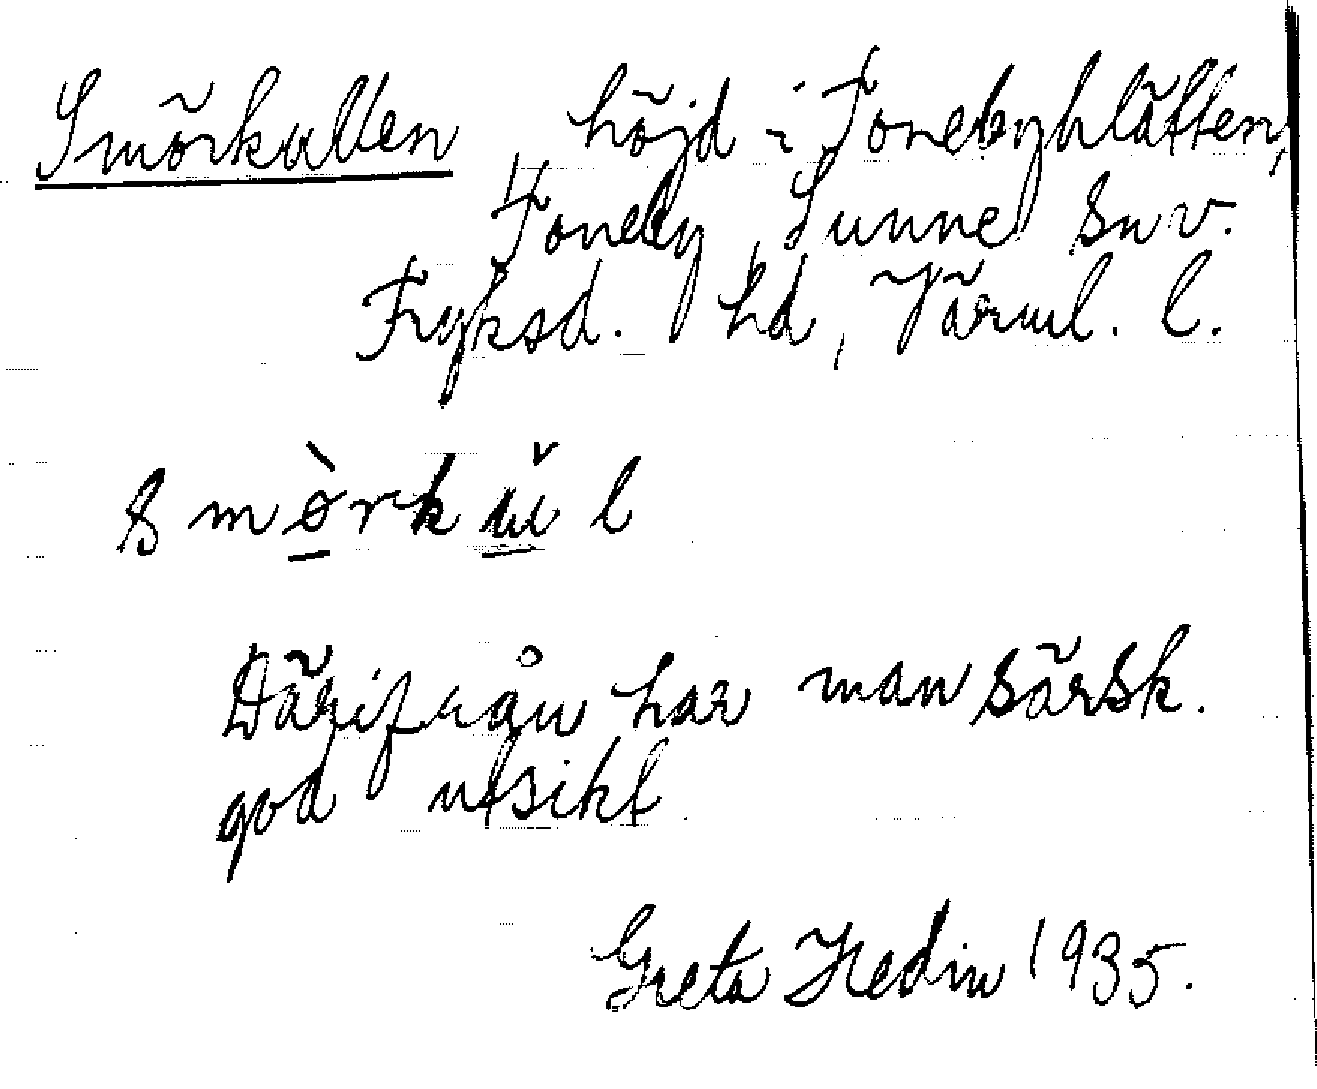 Smörkullen höjd i Tonebyklätten,
Toneby, Sunne sn v.
Fryksd. hd, Värml. l.
smø̀rkŭl
Därifrån har man särsk.
god utsikt
Greta Hedin 1935.